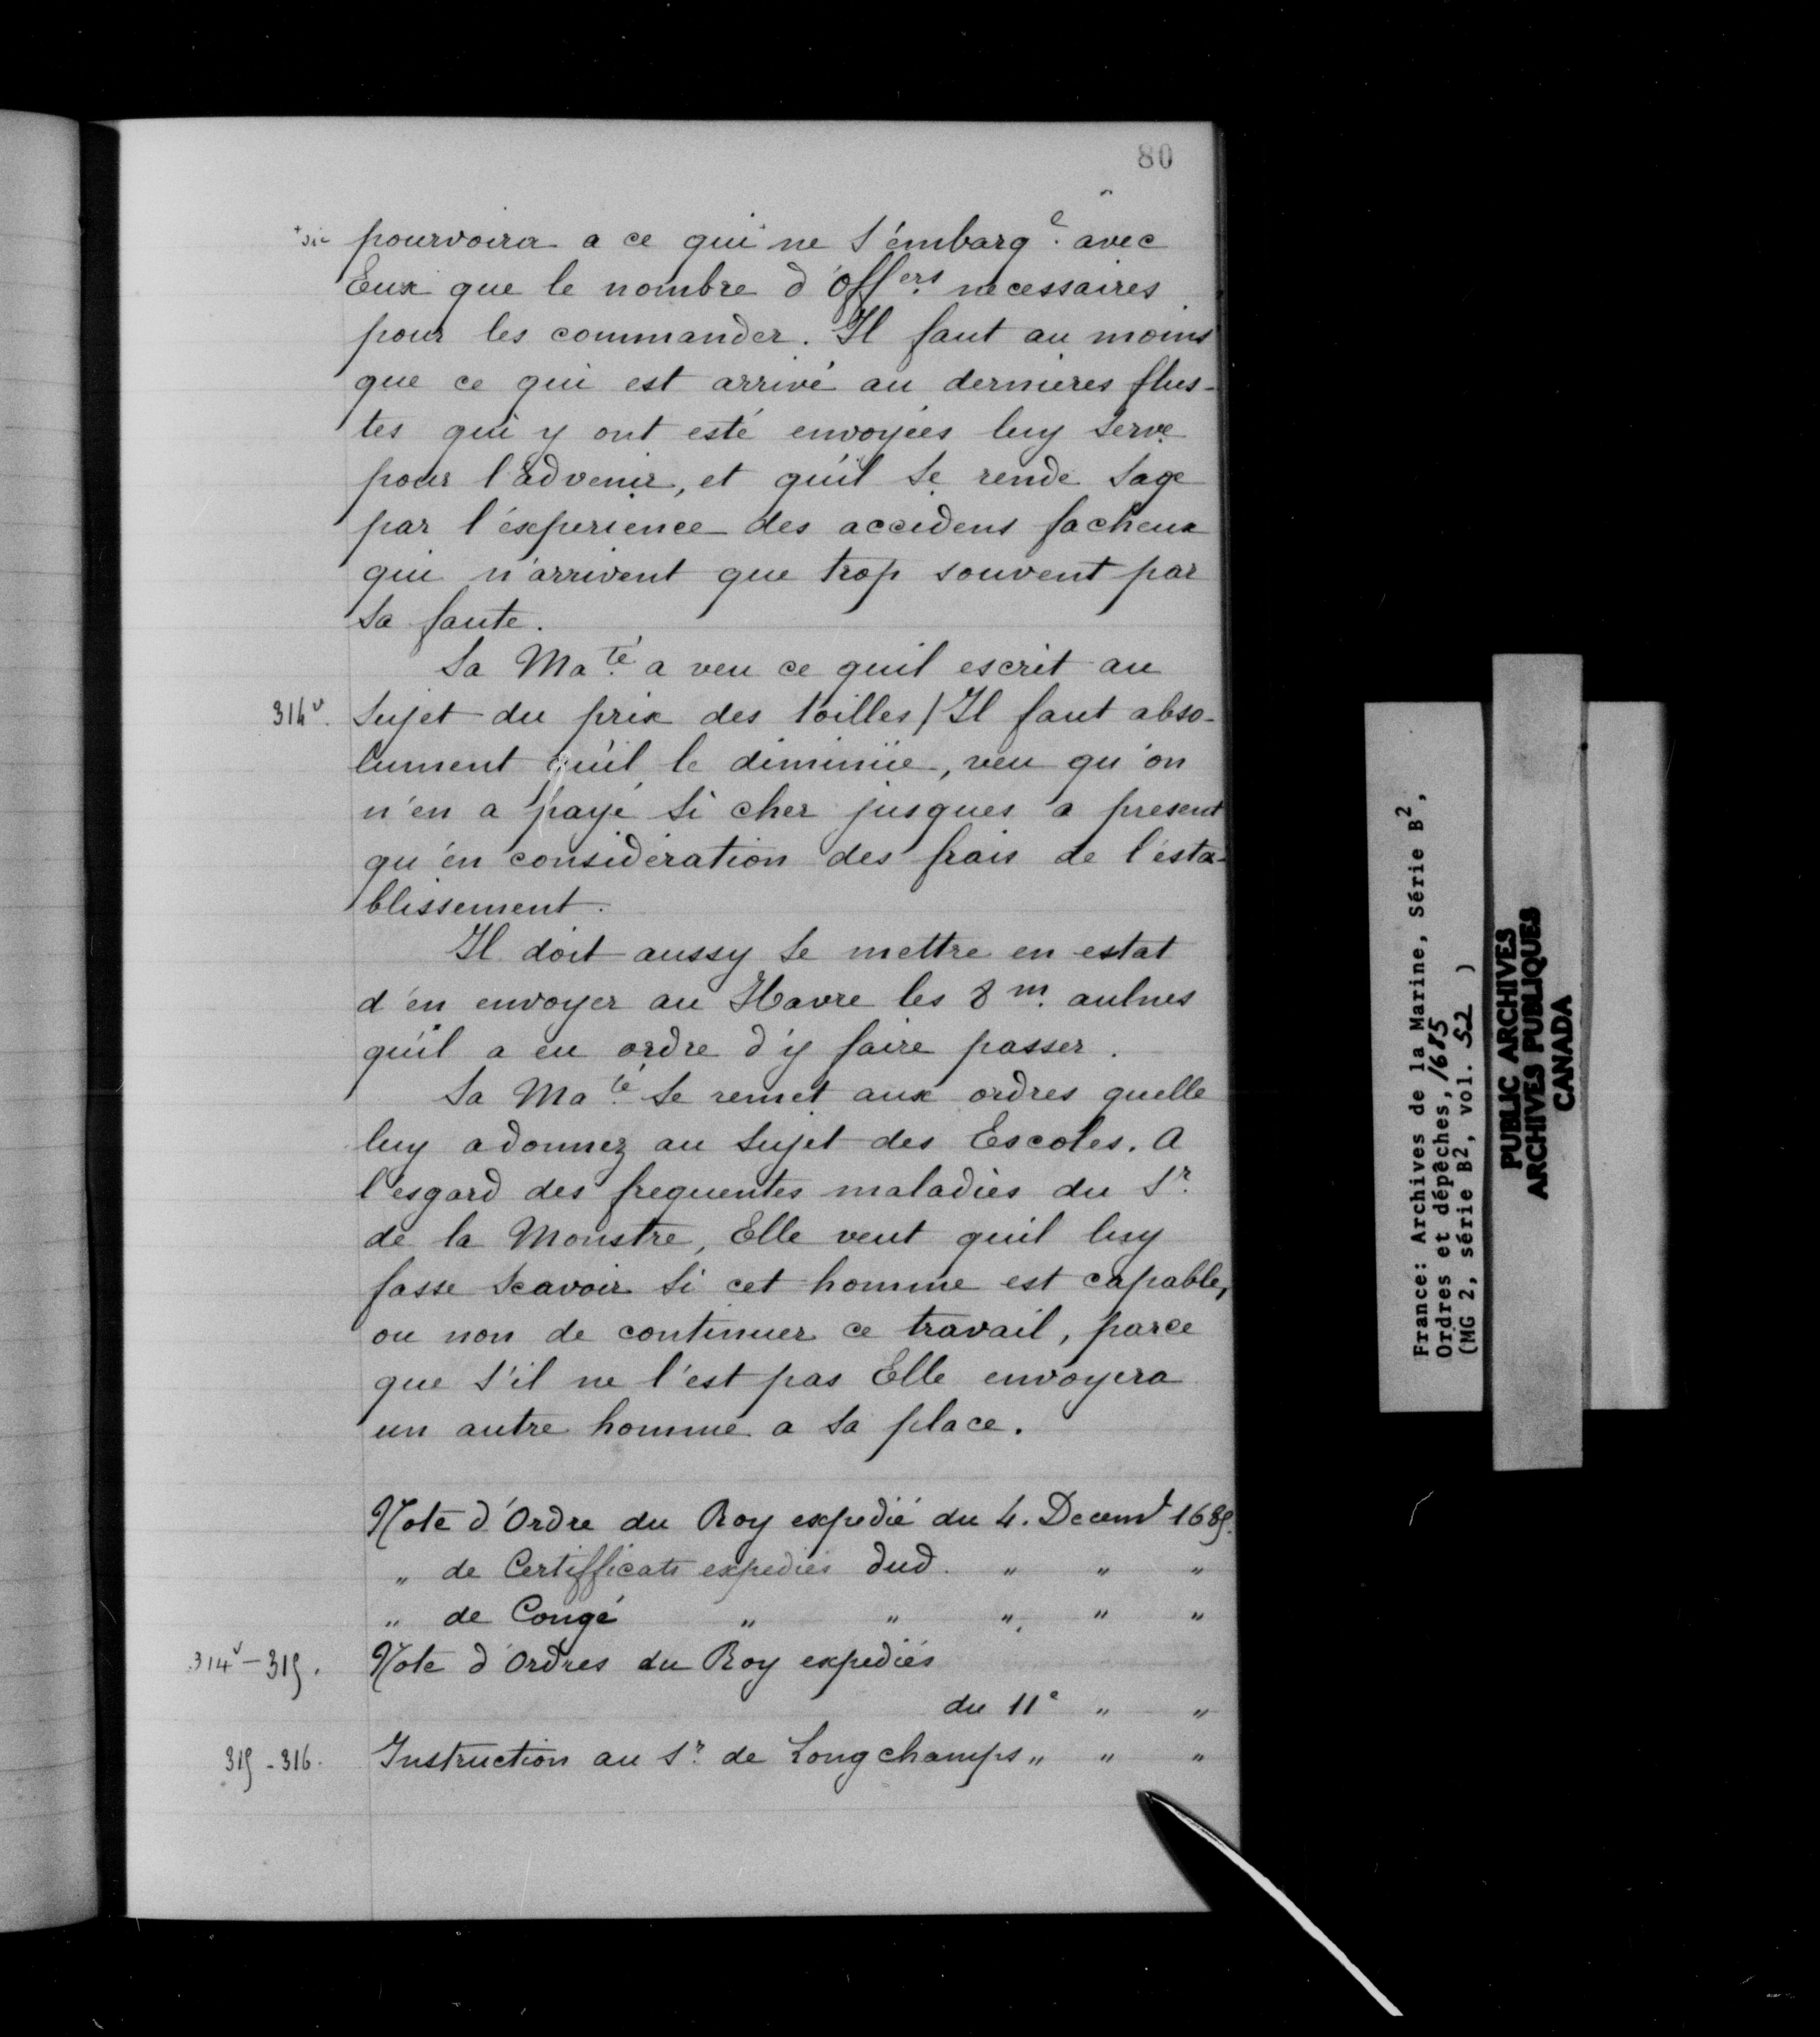 80
+sic pourvoira a ce qui ne s'embarq.e avec
Eux que le nombre d'Offers necessaires
pour les commander. Il faut au moins
que ce qui est arrivé au dernieres flus-
tes qui y ont esté envoyées luy serve
pour l'advenir, et qu'il se rende sage
par l'experience des accidens facheux
qui n'arrivent que trop souvent par
sa faute.
Sa Ma.té a veu ce quil escrit au
314v. Sujet du prix des toilles / Il faut abso-
lument qu'il le diminüe, veu qu'on
n'en a payé si cher jusques a present
qu'en consideration des frais de l'esta-
blissement.
Il doit aussy se mettre en estat
d'en envoyer au Havre les 8 m. aulnes
qu'il a eu ordre d'y faire passer.
Sa Ma.té se remet aux ordres quelle
luy a donnez au sujet des Escoles. A
l'esgard des frequentes maladies du Sr.
de la Monstre, Elle veut quil luy
fasse scavoir si cet homme est capable,
ou non de continuer ce travail, parce
que s'il ne l'est pas Elle envoyera
un autre homme a sa place.
Note d'Ordre du Roy expedié du 4. Decem' 1685.
" de Certifficats expediés dud. " " "
" de Congé " " " " "
314v-315. Note d'Ordres du Roy expediés
du 11e " "
315-316. Instruction au Sr. de Longchamps " " "
France: Archives de la Marine, Série B2,
Ordres et dépêches, 1685
(MG 2, série B2, vol. 52 )
PUBLIC ARCHIVES
ARCHIVES PUBLIQUES
CANADA